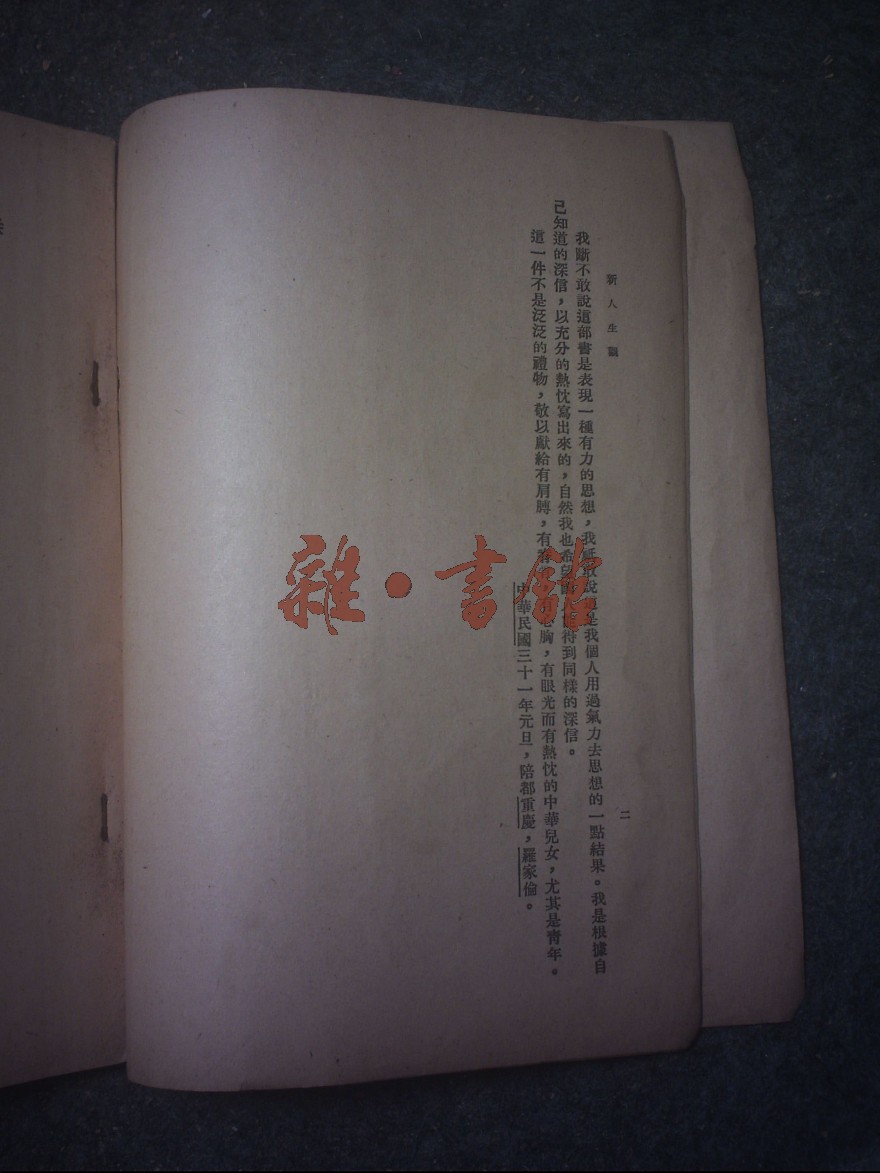 新人生觀
二
我斷不敢說這部書是表現一種有力的思想，我祗敢說這是我個人用過氣力去思想的一點結果。我是根據自
己知道的深信，以充分的熱忱寫出來的，自然我也希望得到同樣的深信。
這一件不是泛泛的禮物，敬以獻給有肩膊，有胸，有眼光而有熱忱的中華兒女，尤其是青年。
中華民國三十一年元旦，陪都重慶，羅家倫。
雜·書館